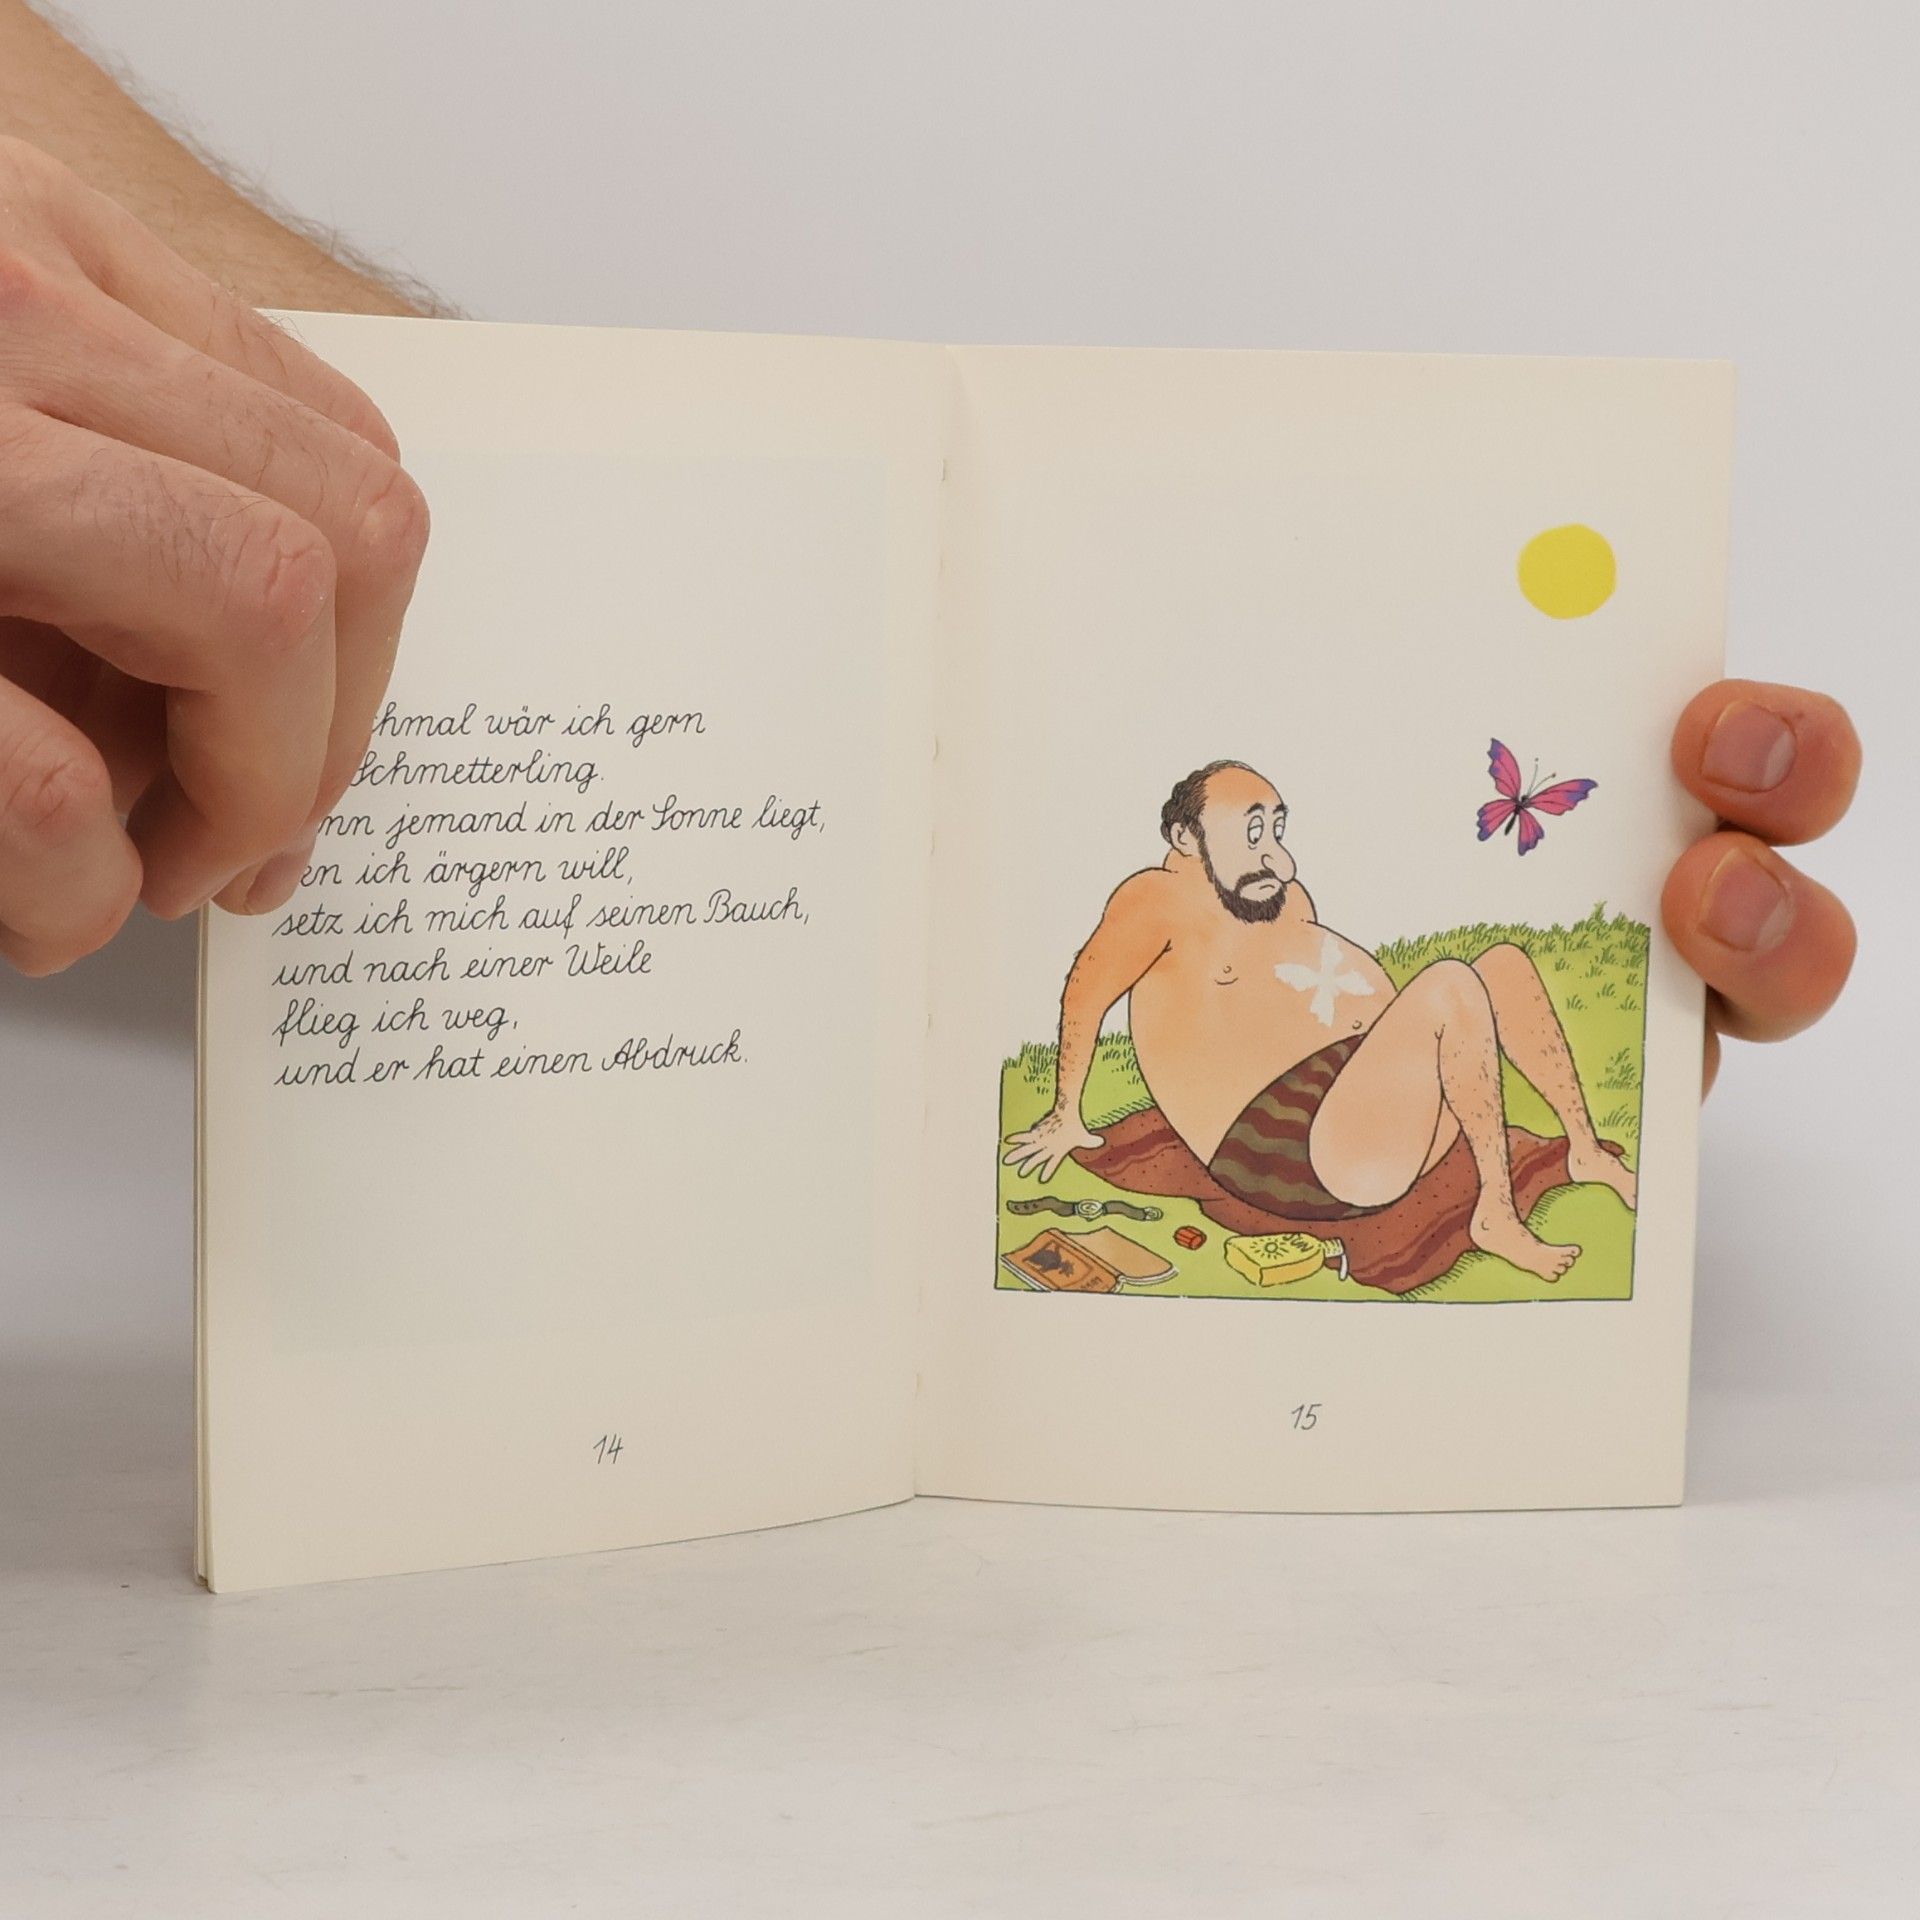 chmal wär ich gern
Schmetterling.
nn jemand in der Sonne liegt,
en ich ärgern will,
setz ich mich auf seinen Bauch,
und nach einer Weile
flieg ich weg,
und er hat einen Abdruck.
14
SUN
15